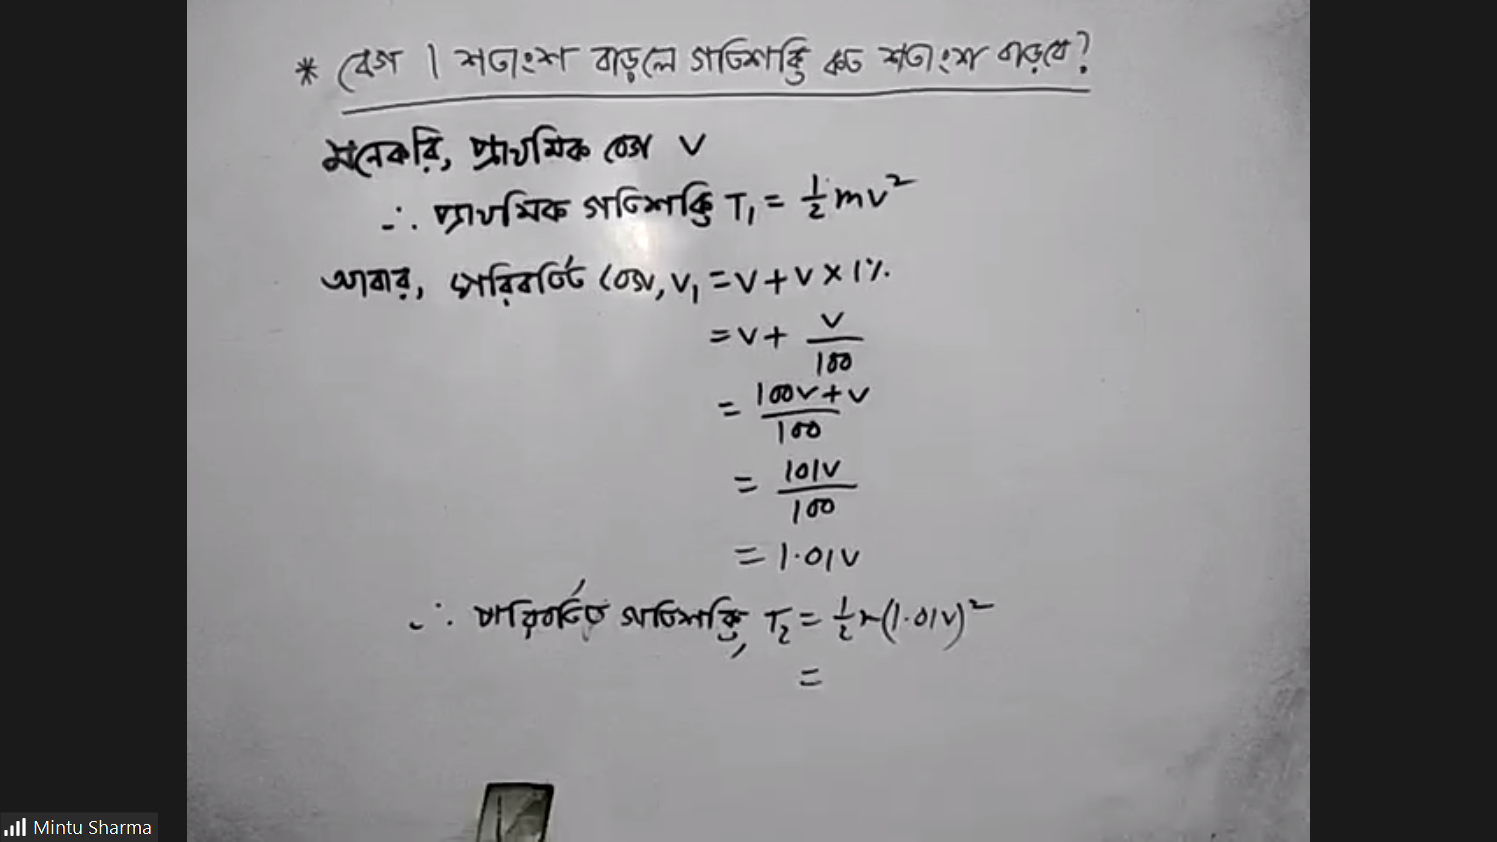 * বেগ 1 শতাংশ বাড়লে গতিশক্তি কত শতাংশ বাড়বে?
মনেকরি, প্রাথমিক বেগ v
∴ প্রাথমিক গতিশক্তি T₁ = 1/2 mv²
আবার, পরিবর্তিত বেগ, v₁ = v + v × 1%
= v + v/100
= 100v+v/100
= 101v/100
= 1.01v
∴ পরিবর্তিত গতিশক্তি, T₂ = 1/2 m(1.01v)²
=
Mintu Sharma